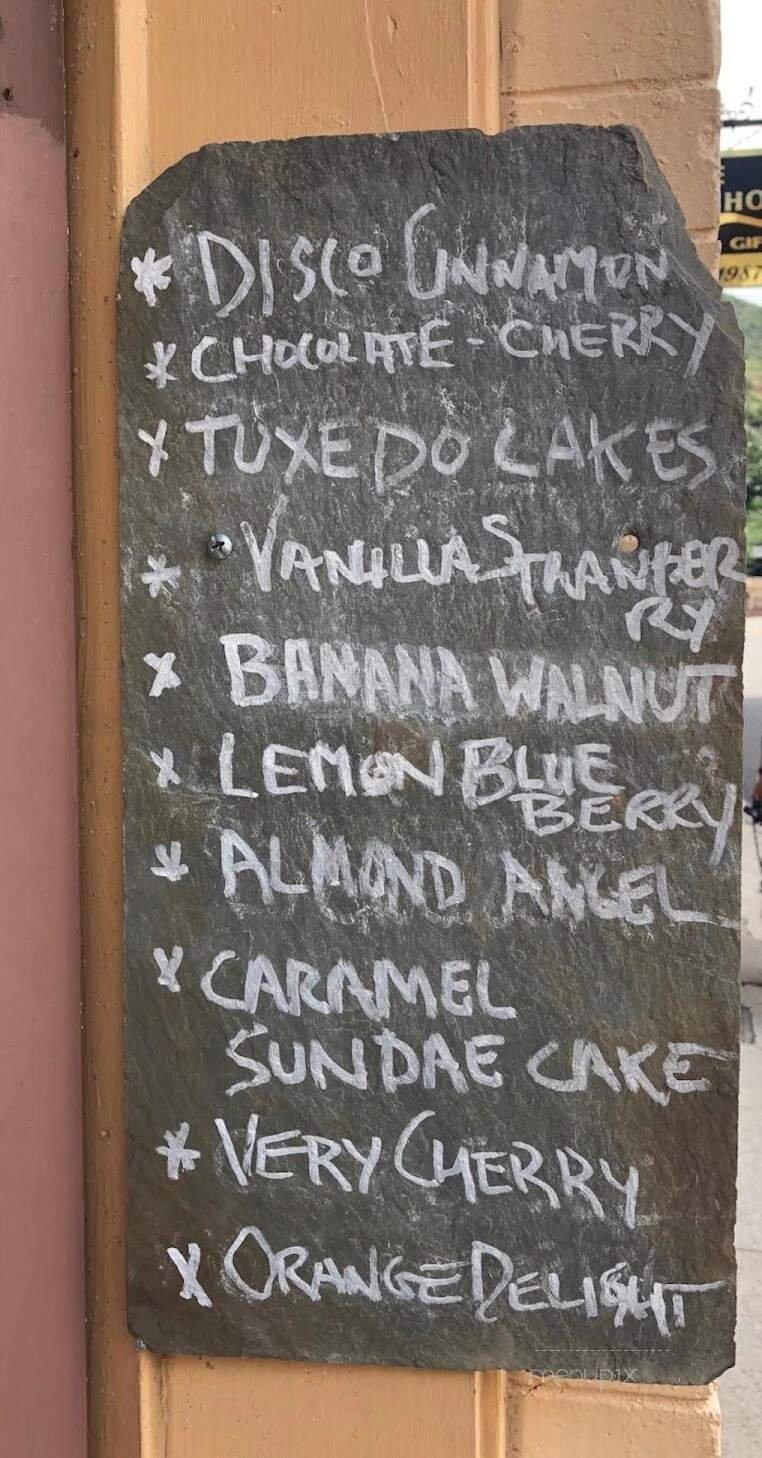 * DISCO CINNAMON
* CHOCOLATE - CHERRY
* TUXEDO CAKES
* VANILLA STRAWBER
RY
* BANANA WALNUT
* LEMON BLUE
BERRY
* ALMOND ANGEL
* CARAMEL
SUNDAE CAKE
* VERY CHERRY
* ORANGE DELIGHT
menupix
HO
GIF
1987